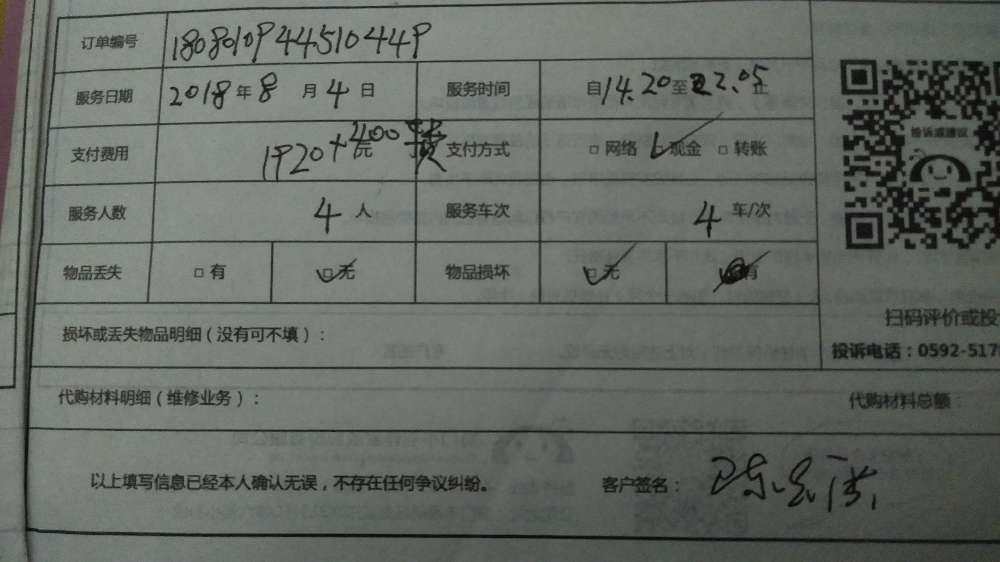 订单编号 1808010944510449
服务日期 2018年8月4日 服务时间 自14.20至22.05止
支付费用 1920+400元 支付方式 □网络 ☑现金 □转账
服务人数 4人 服务车次 4车/次
物品丢失 □有 ☑无 物品损坏 ☑无 有
损坏或丢失物品明细（没有可不填）：
代购材料明细（维修业务）： 代购材料总额：
以上填写信息已经本人确认无误，不存在任何争议纠纷。 客户签名：陈
投诉或建议
扫码评价或投
投诉电话：0592-517